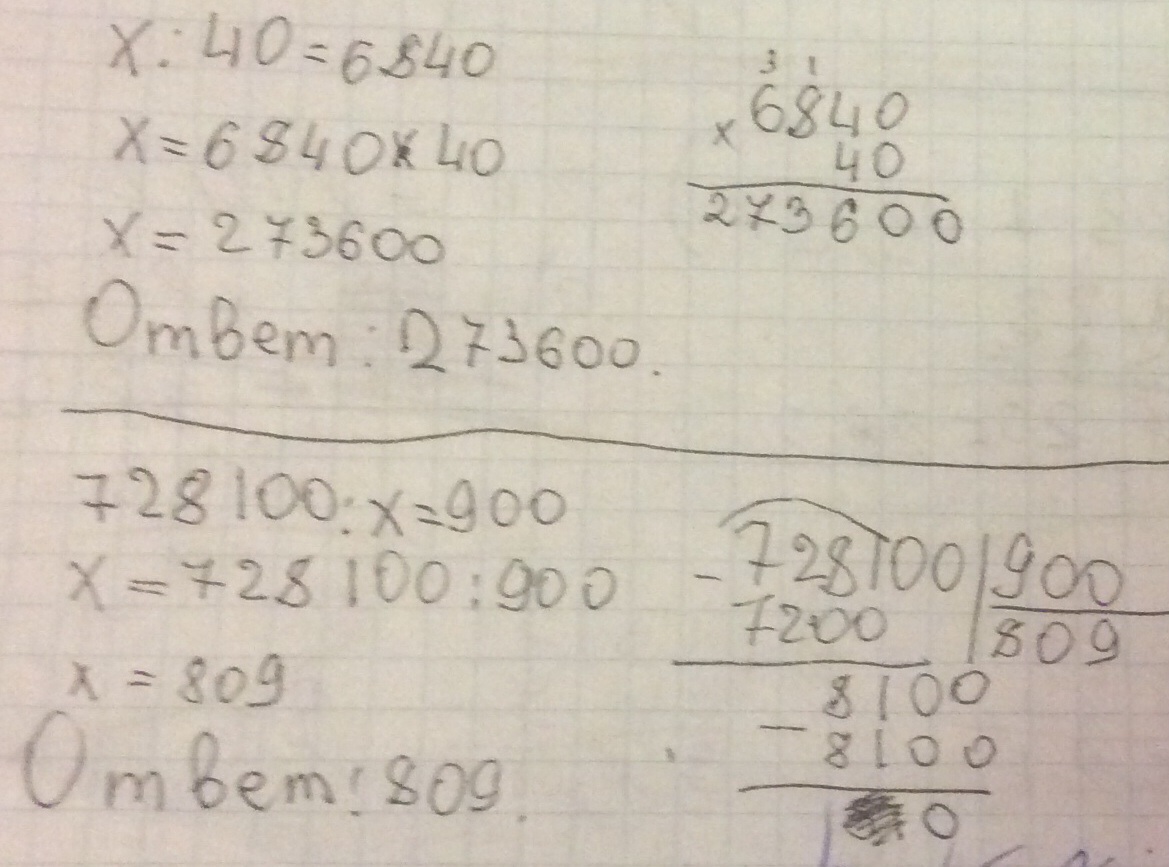 x : 40 = 6840
x = 6840 × 40
x = 273600
Ответ : 273600.
3 1
× 6840
40
273600
728100 : x = 900
x = 728100 : 900
x = 809
Ответ : 809.
- 728100 | 900
7200 | 809
8100
- 8100
0